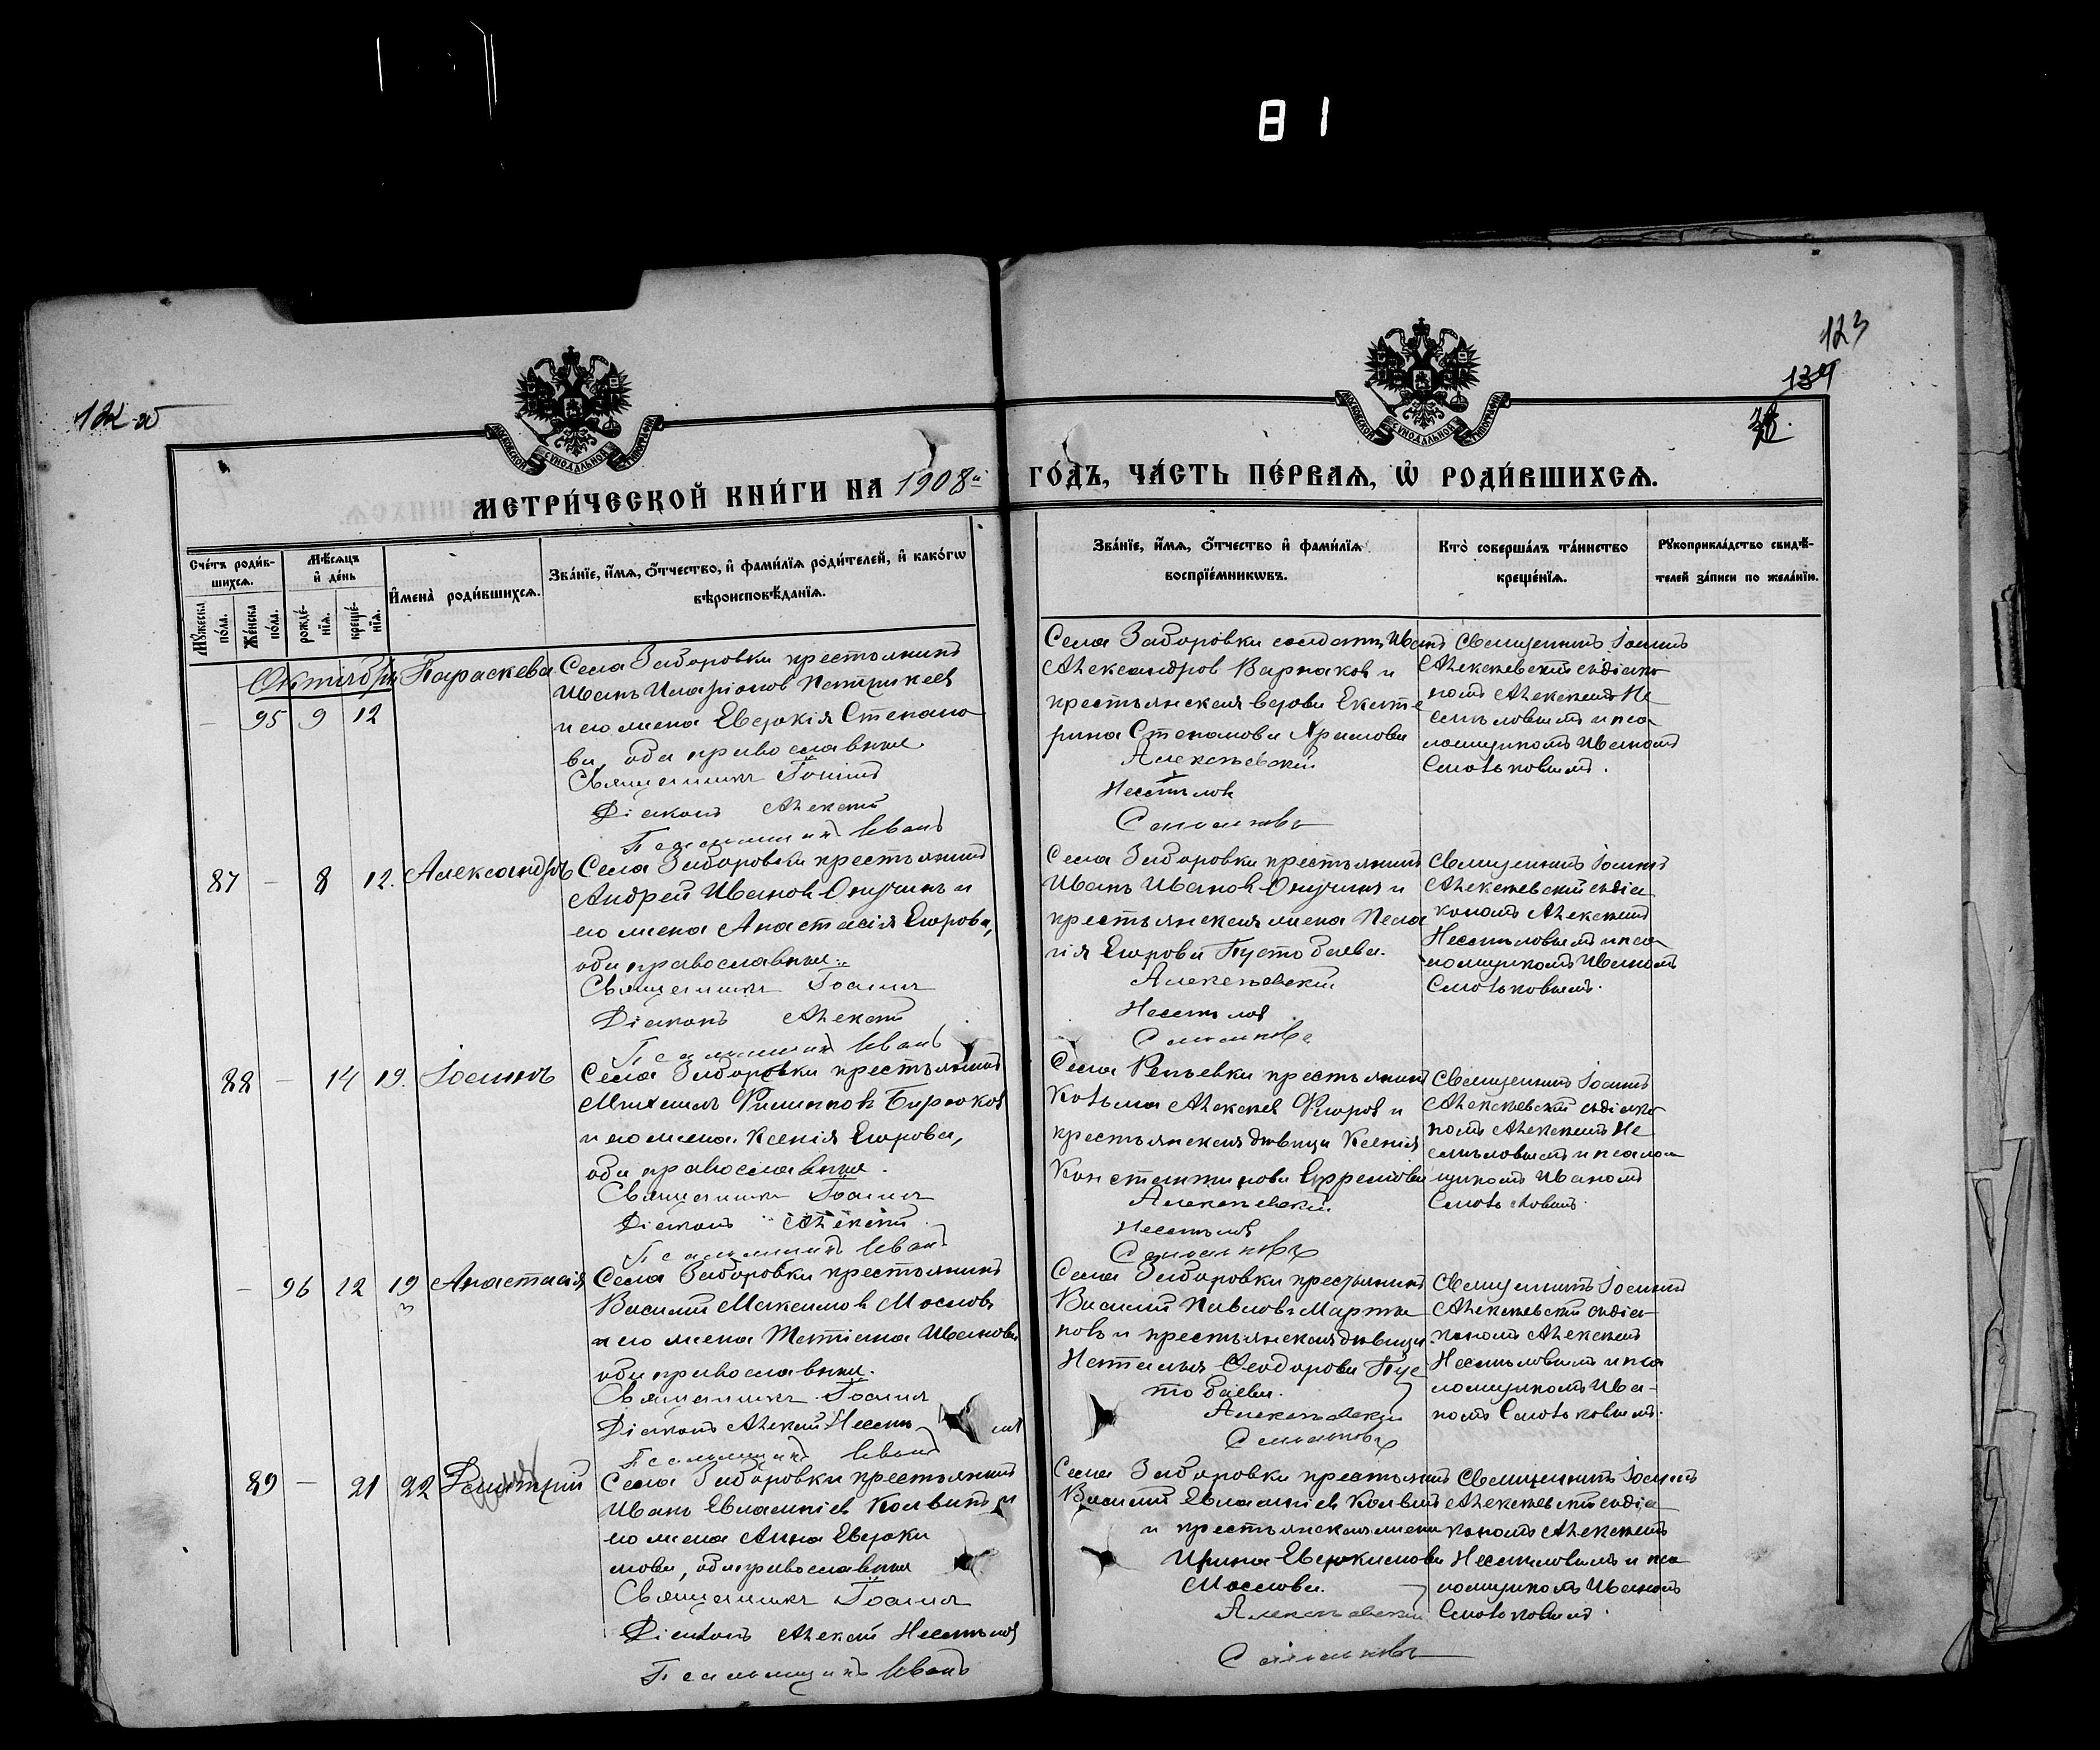 81
123
134
МОСКОВСКОЙ СУНОДАЛЬНОЙ ТИПОГРАФІИ
МОСКОВСКОЙ СУНОДАЛЬНОЙ ТИПОГРАФІИ
МЕТРИ́ЧЕСКОЙ КНИ́ГИ НА 1908й ГО́ДЪ, ЧА́СТЬ ПЕ́РВАѦ, Ѡ҆ РОДИ́ВШИХСѦ.
Сче́тъ роди́в-
шихсѧ.
Мꙋ́жеска по́ла.
Же́нска по́ла.
Мѣ́сѧцъ и҆ де́нь
рожде́-нїѧ.
креще́-нїѧ.
И҆мена̀ роди́вшихсѧ.
Зва́нїе, и҆́мѧ, ѻ҆́тчество, и҆ фами́лїѧ роди́телей, и҆ како́гѡ
вѣроисповѣ́данїѧ.
Зва́нїе, и҆́мѧ, ѻ҆́тчество и҆ фами́лїѧ
воспрїе́мникѡвъ.
Кто̀ соверша́лъ та́инство
креще́нїѧ.
Рꙋкоприкла́дство свидѣ́-
телей за́писи по жела́нїю.
Октябрь
– 95 9 12 Параскева
Села Заборовки крестьянинъ
Иванъ Иларіоновъ Петрикеев
и его жена Евдокія Степано-
ва, оба православные.
Священникъ Іоаннъ
Діаконъ Алексѣй
Псаломщикъ Иванъ
Села Заборовки солдатъ Иванъ
Александров Варнаков и
крестьянская вдова Екате
рина Степанова
Алексѣевскій
Несмѣлов
Священникъ Іоаннъ
Алексѣевскій съ діако
номъ Алексѣемъ Не
смѣловымъ и пса
ломщикомъ Иваномъ
87 – 8 12. Александръ
Села Заборовки крестьянинъ
Андрей Иванов Онучинъ и
его жена Анастасія Егорова,
оба православные.
Священникъ Іоаннъ
Діаконъ Алексѣй
Псаломщикъ Иванъ
Села Заборовки крестьянинъ
Иванъ Иванов Онучинъ и
крестьянская жена Пела
гія Егорова Пустобаева.
Алексѣевскій
Несмѣлов
Священникъ Іоаннъ
Алексѣевскій съ діа
кономъ Алексѣемъ
Несмѣловымъ и пса
ломщикомъ Иваномъ
88 – 14 19. Іоаннъ
Села Заборовки крестьянинъ
Михаилъ Филиппов Бирюков
и его жена Ксенія Егорова,
оба православные.
Священникъ Іоаннъ
Діаконъ Алексѣй
Псаломщикъ Иванъ
Села Репьевки крестьянинъ
Козьма Алексѣев Егоров и
крестьянская дѣвица Ксенія
Константинова Ефремова
Алексѣевскій
Несмѣлов
Священникъ Іоаннъ
Алексѣевскій съ діако
номъ Алексѣемъ Не
смѣловымъ и псалом
щикомъ Иваномъ
– 96 12 19 Анастасія
Села Заборовки крестьянинъ
Василій Максимов Маслов
и его жена Татіана Иванова
оба православные.
Священникъ Іоаннъ
Діаконъ Алексѣй Несмѣлов
Псаломщикъ Иванъ
Села Заборовки крестьянинъ
Василій Павловъ Марты
новъ и крестьянская дѣвица
Наталья Ѳеодорова Пус
тобаева.
Алексѣевскій
Священникъ Іоаннъ
Алексѣевскій съ діа-
кономъ Алексѣемъ
Несмѣловымъ и пса
ломщикомъ Ива-
номъ
89 – 21 22 Димитрий
Села Заборовки крестьянинъ
Иванъ Евлампіев и
его жена Анна Евдоки
мова, оба православные
Священникъ Іоаннъ
Діаконъ Алексѣй Несмѣлов
Псаломщикъ Иванъ
Села Заборовки крестьянинъ
Василій Евлампіев
и крестьянская жена
Ирина Евдокимова
Маслова.
Алексѣевскій
Священникъ Іоаннъ
Алексѣевскій съ діа
кономъ Алексѣемъ
Несмѣловымъ и пса
ломщикомъ Иваномъ